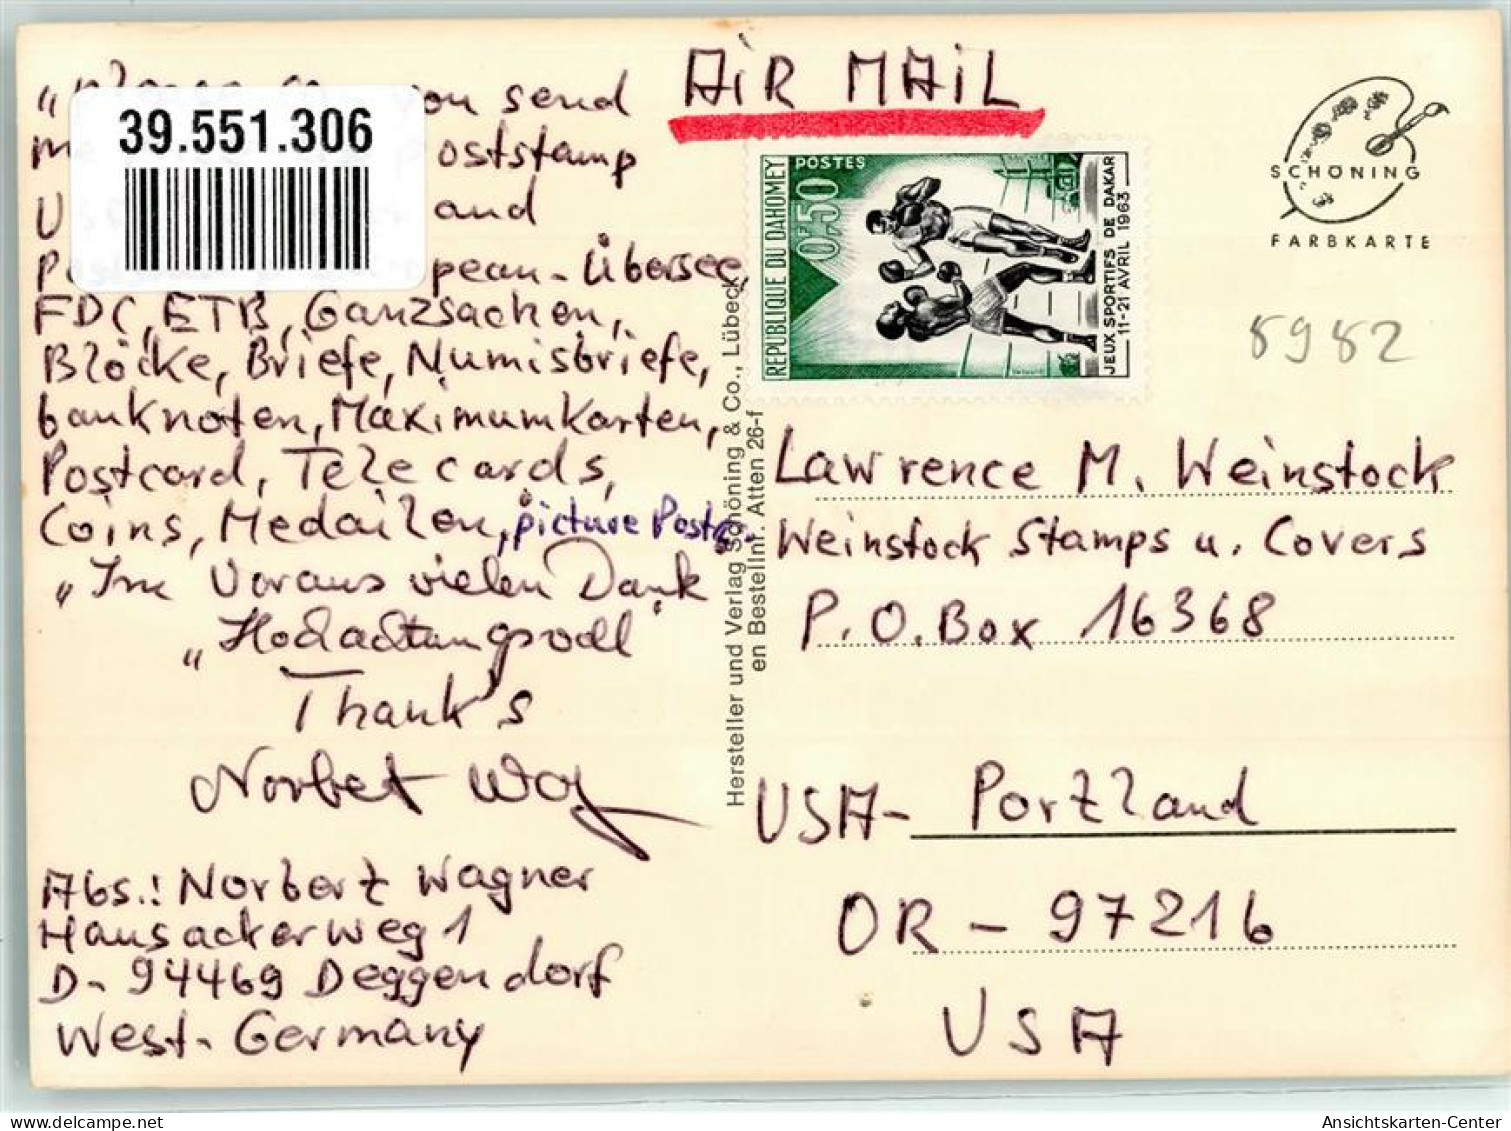 AiR MAiL
39.551.306
you send
poststamp
and
pean-Übersee,
FDC, ETB, Ganzsachen,
Blöcke, Briefe, Numisbriefe,
banknoten, Maximumkarten,
Postcard, Telecards,
Coins, Medailen, picture Postc.
"Im Voraus vielen Dank"
"Hochachtungsvoll"
Thank's
Norbert
Abs.: Norbert Wagner
Hausackerweg 1
D-94469 Deggendorf
West-Germany
Hersteller und Verlag Schöning & Co., Lübeck
en Bestellnr. Atten 26-f
REPUBLIQUE DU DAHOMEY
POSTES
0F50
JEUX SPORTIFS DE DAKAR
11-21 AVRIL 1963
SCHÖNING
FARBKARTE
8982
Lawrence M. Weinstock
Weinstock Stamps u. Covers
P.O.Box 16368
USA- Portland
OR - 97216
USA
Ansichtskarten-Center